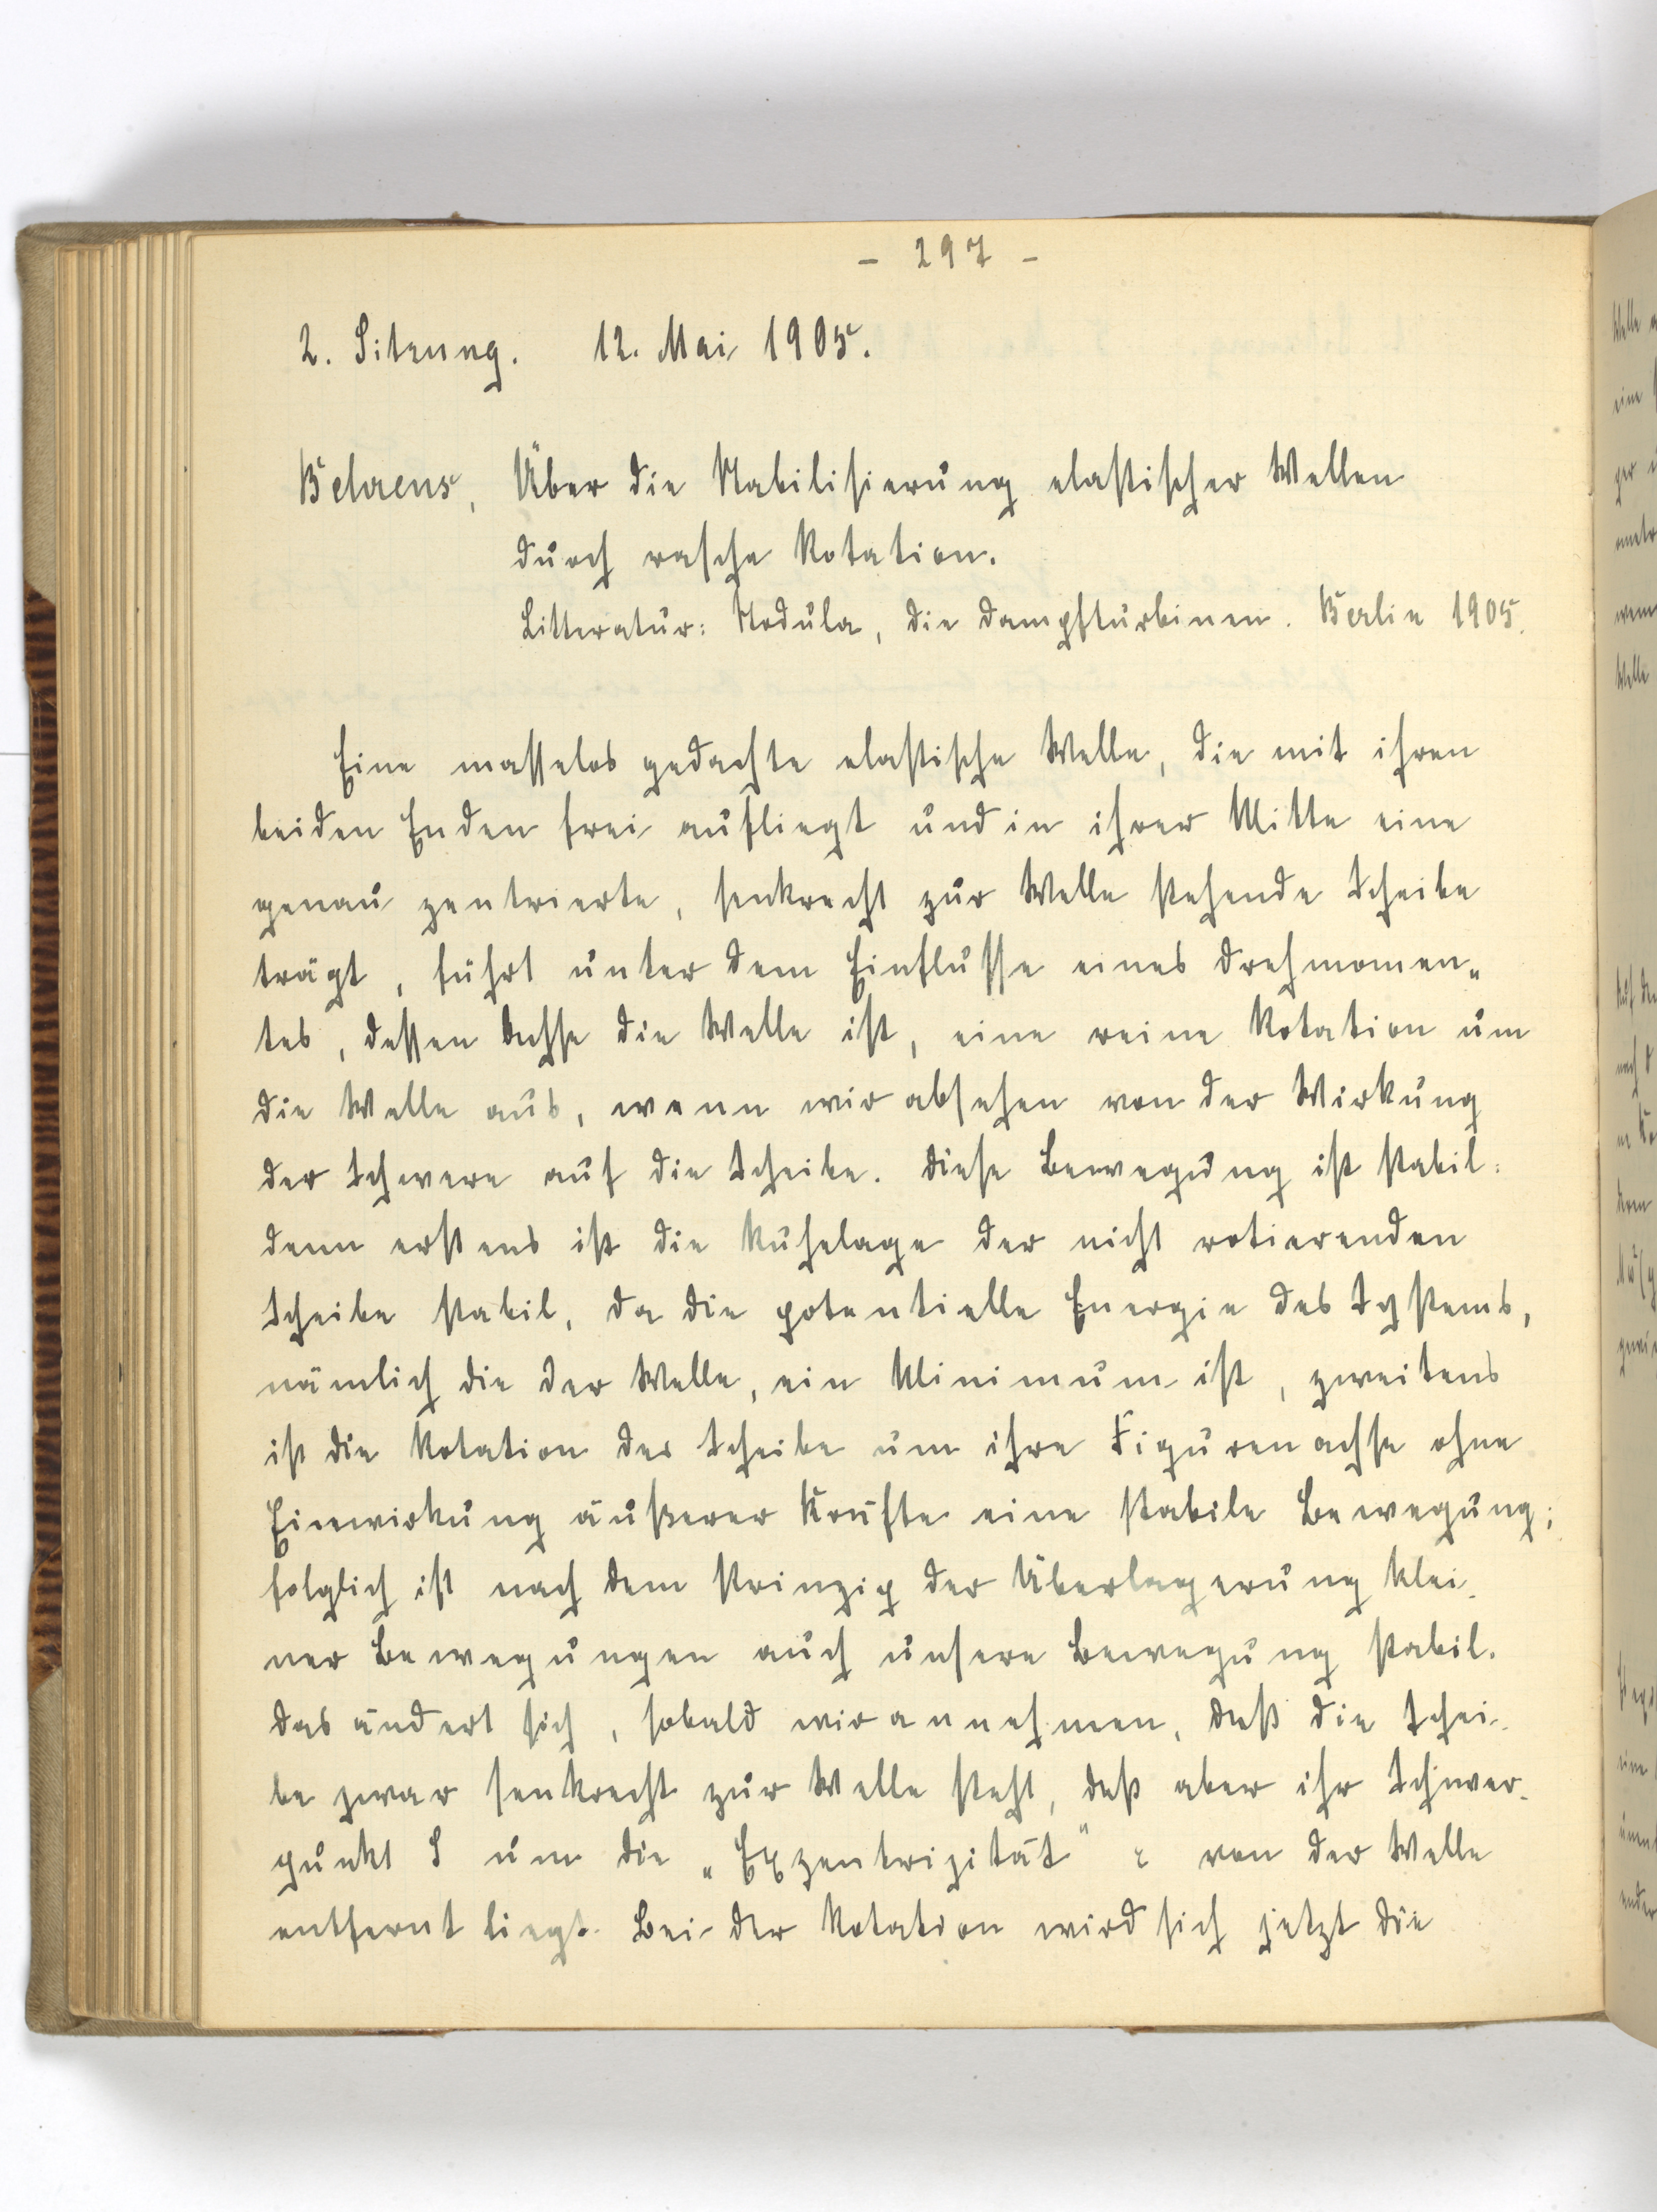 - 297 -
2. Sitzung. 12. Mai 1905.
Behrens, Über die Stabilisierung elastischer Wellen
durch rasche Rotation.
Litteratur: Stodula, die Dampfturbinen. Berlin 1905.
Eine masselos gedachte elastische Welle, die mit ihren
beiden Enden frei aufliegt und in ihrer Mitte eine
genau zentrierte, senkrecht zur Welle stehende Scheibe
trägt, führt unter dem Einflusse eines Drehmomen„
tes, dessen Achse die Welle ist, eine reine Rotation um
die Welle aus, wenn wir absehen von der Wirkung
der Schwere auf die Scheibe. Diese Bewegung ist stabil:
denn erstens ist die Ruhelage der nicht rotierenden
Scheibe stabil, da die potentielle Energie des Systems,
nämlich die der Welle, ein Minimum ist, zweitens
ist die Rotation der Scheibe um ihre Figurenachse ohne
Einwirkung äußerer Kräfte eine stabile Bewegung;
folglich ist nach dem Prinzip der Überlagerung klei-
ner Bewegungen auch unsere Bewegung stabil.
Das ändert sich, sobald wir annehmen, daß die Schei-
be zwar senkrecht zur Welle steht, daß aber ihr Schwer-
punkt S um die „Exzentrizität" e von der Welle
entfernt liegt. Bei der Rotation wird sich jetzt die